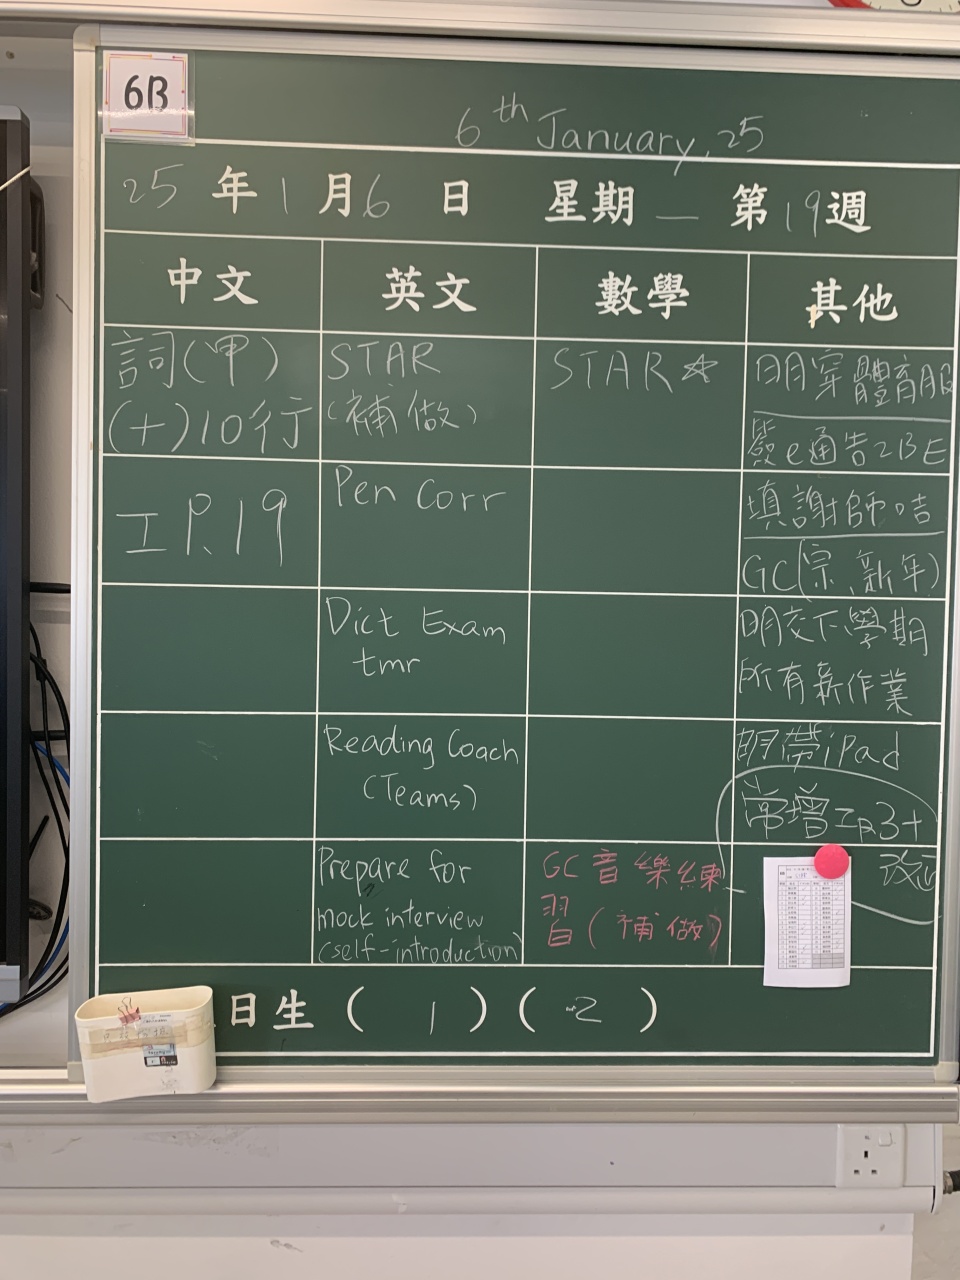 6B
6th January, 25
25年1月6日 星期一 第19週
中文 英文 數學 其他
詞(甲)
(十)10行
工P.19
STAR
(補做)
Pen Corr
Dict Exam
tmr
Reading Coach
(Teams)
Prepare for
mock interview
(self-introduction)
STAR☆
GC音樂練
習(補做)
明穿體育服
簽e通告2BE
填謝師咭
GC(宗、新年)
明交下學期
所有新作業
明帶iPad
常增工P.3十
改正
日生(1)(2)